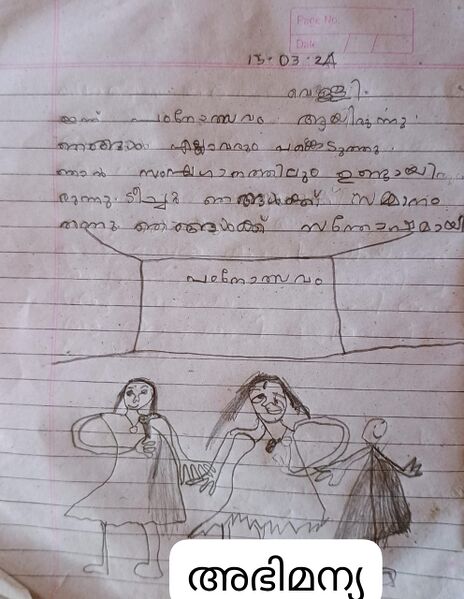 Page No.
Date
15.03.24
വെള്ളി.
ഇന്ന് പഠനോത്സവം ആയിരുന്നു.
ഞങ്ങൾ എല്ലാവരും പങ്കെടുത്തു.
ഞാൻ സംഘഗാനത്തിലും ഉണ്ടായി
രുന്നു. ടീച്ചർ ഞങ്ങൾക്ക് സമ്മാനം
തന്നു ഞങ്ങൾക്ക് സന്തോഷമായി
പഠനോത്സവം
അഭിമന്യ